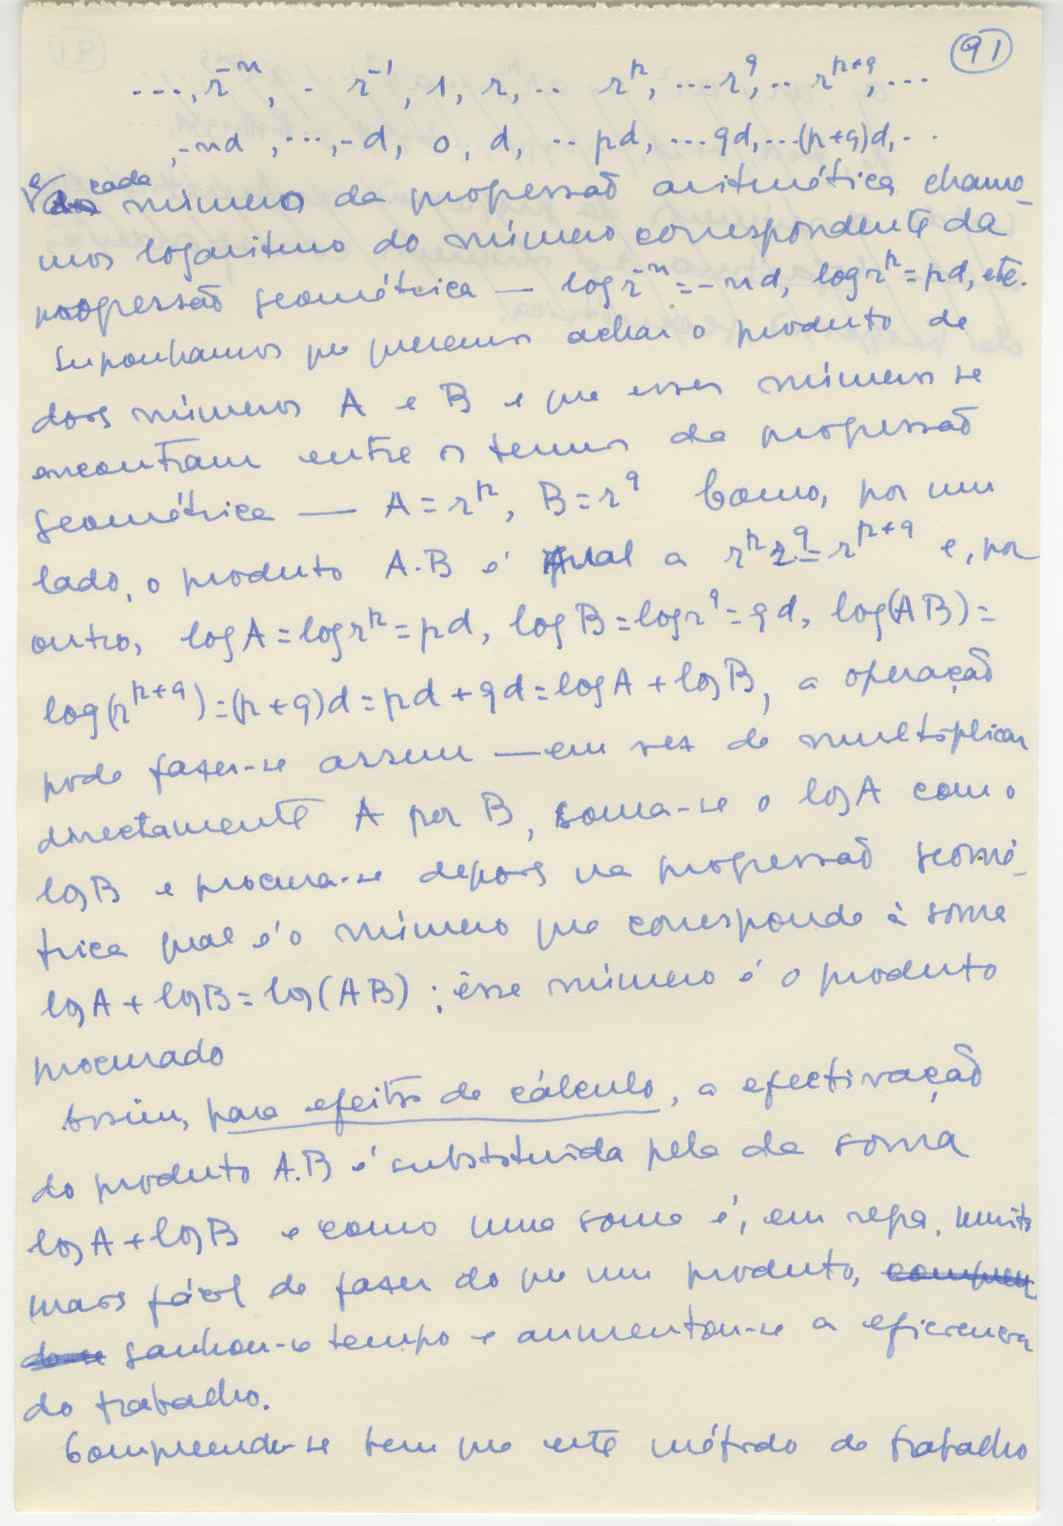 91
..., r⁻ⁿ, . r⁻¹, 1, r, .. rᵖ, ... r^q, .. r^(p+q), ...
, -nd, ..., -d, 0, d, .. pd, ... qd, ...(p+q)d, . .
cada
número da progressão aritmética, chama-
mos logaritmo do número correspondente da
progressão geométrica — log r⁻ⁿ = -nd, log rᵖ = pd, etc.
Suponhamos que queremos achar o produto de
dois números A e B e que esses números se
encontram entre os termos da progressão
geométrica — A = rᵖ, B = r^q Como, por um
lado, o produto A.B é igual a rᵖ r^q = r^(p+q) e, por
outro, log A = log rᵖ = pd, log B = log r^q = qd, log(AB) =
log(r^(p+q)) = (p+q)d = pd + qd = log A + log B, a operação
pode fazer-se assim — em vez de multiplicar
directamente A por B, soma-se o log A com o
log B e procura-se depois na progressão geomé-
trica qual é o número que corresponde à soma
log A + log B = log(AB) ; êsse número é o produto
procurado
Assim, para efeitos de cálculo, a efectivação
do produto A.B é substituida pela da soma
log A + log B e como uma soma é, em regra, muito
mais fácil de fazer do que um produto,
ganhou-se tempo e aumentou-se a eficiencia
do trabalho.
Compreende-se bem que este método de trabalho